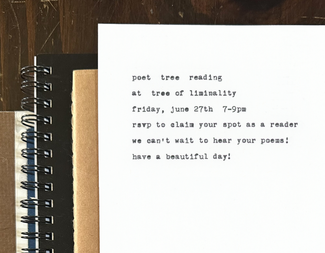 poet tree reading
at tree of liminality
friday, june 27th 7-9pm
rsvp to claim your spot as a reader
we can't wait to hear your poems!
have a beautiful day!